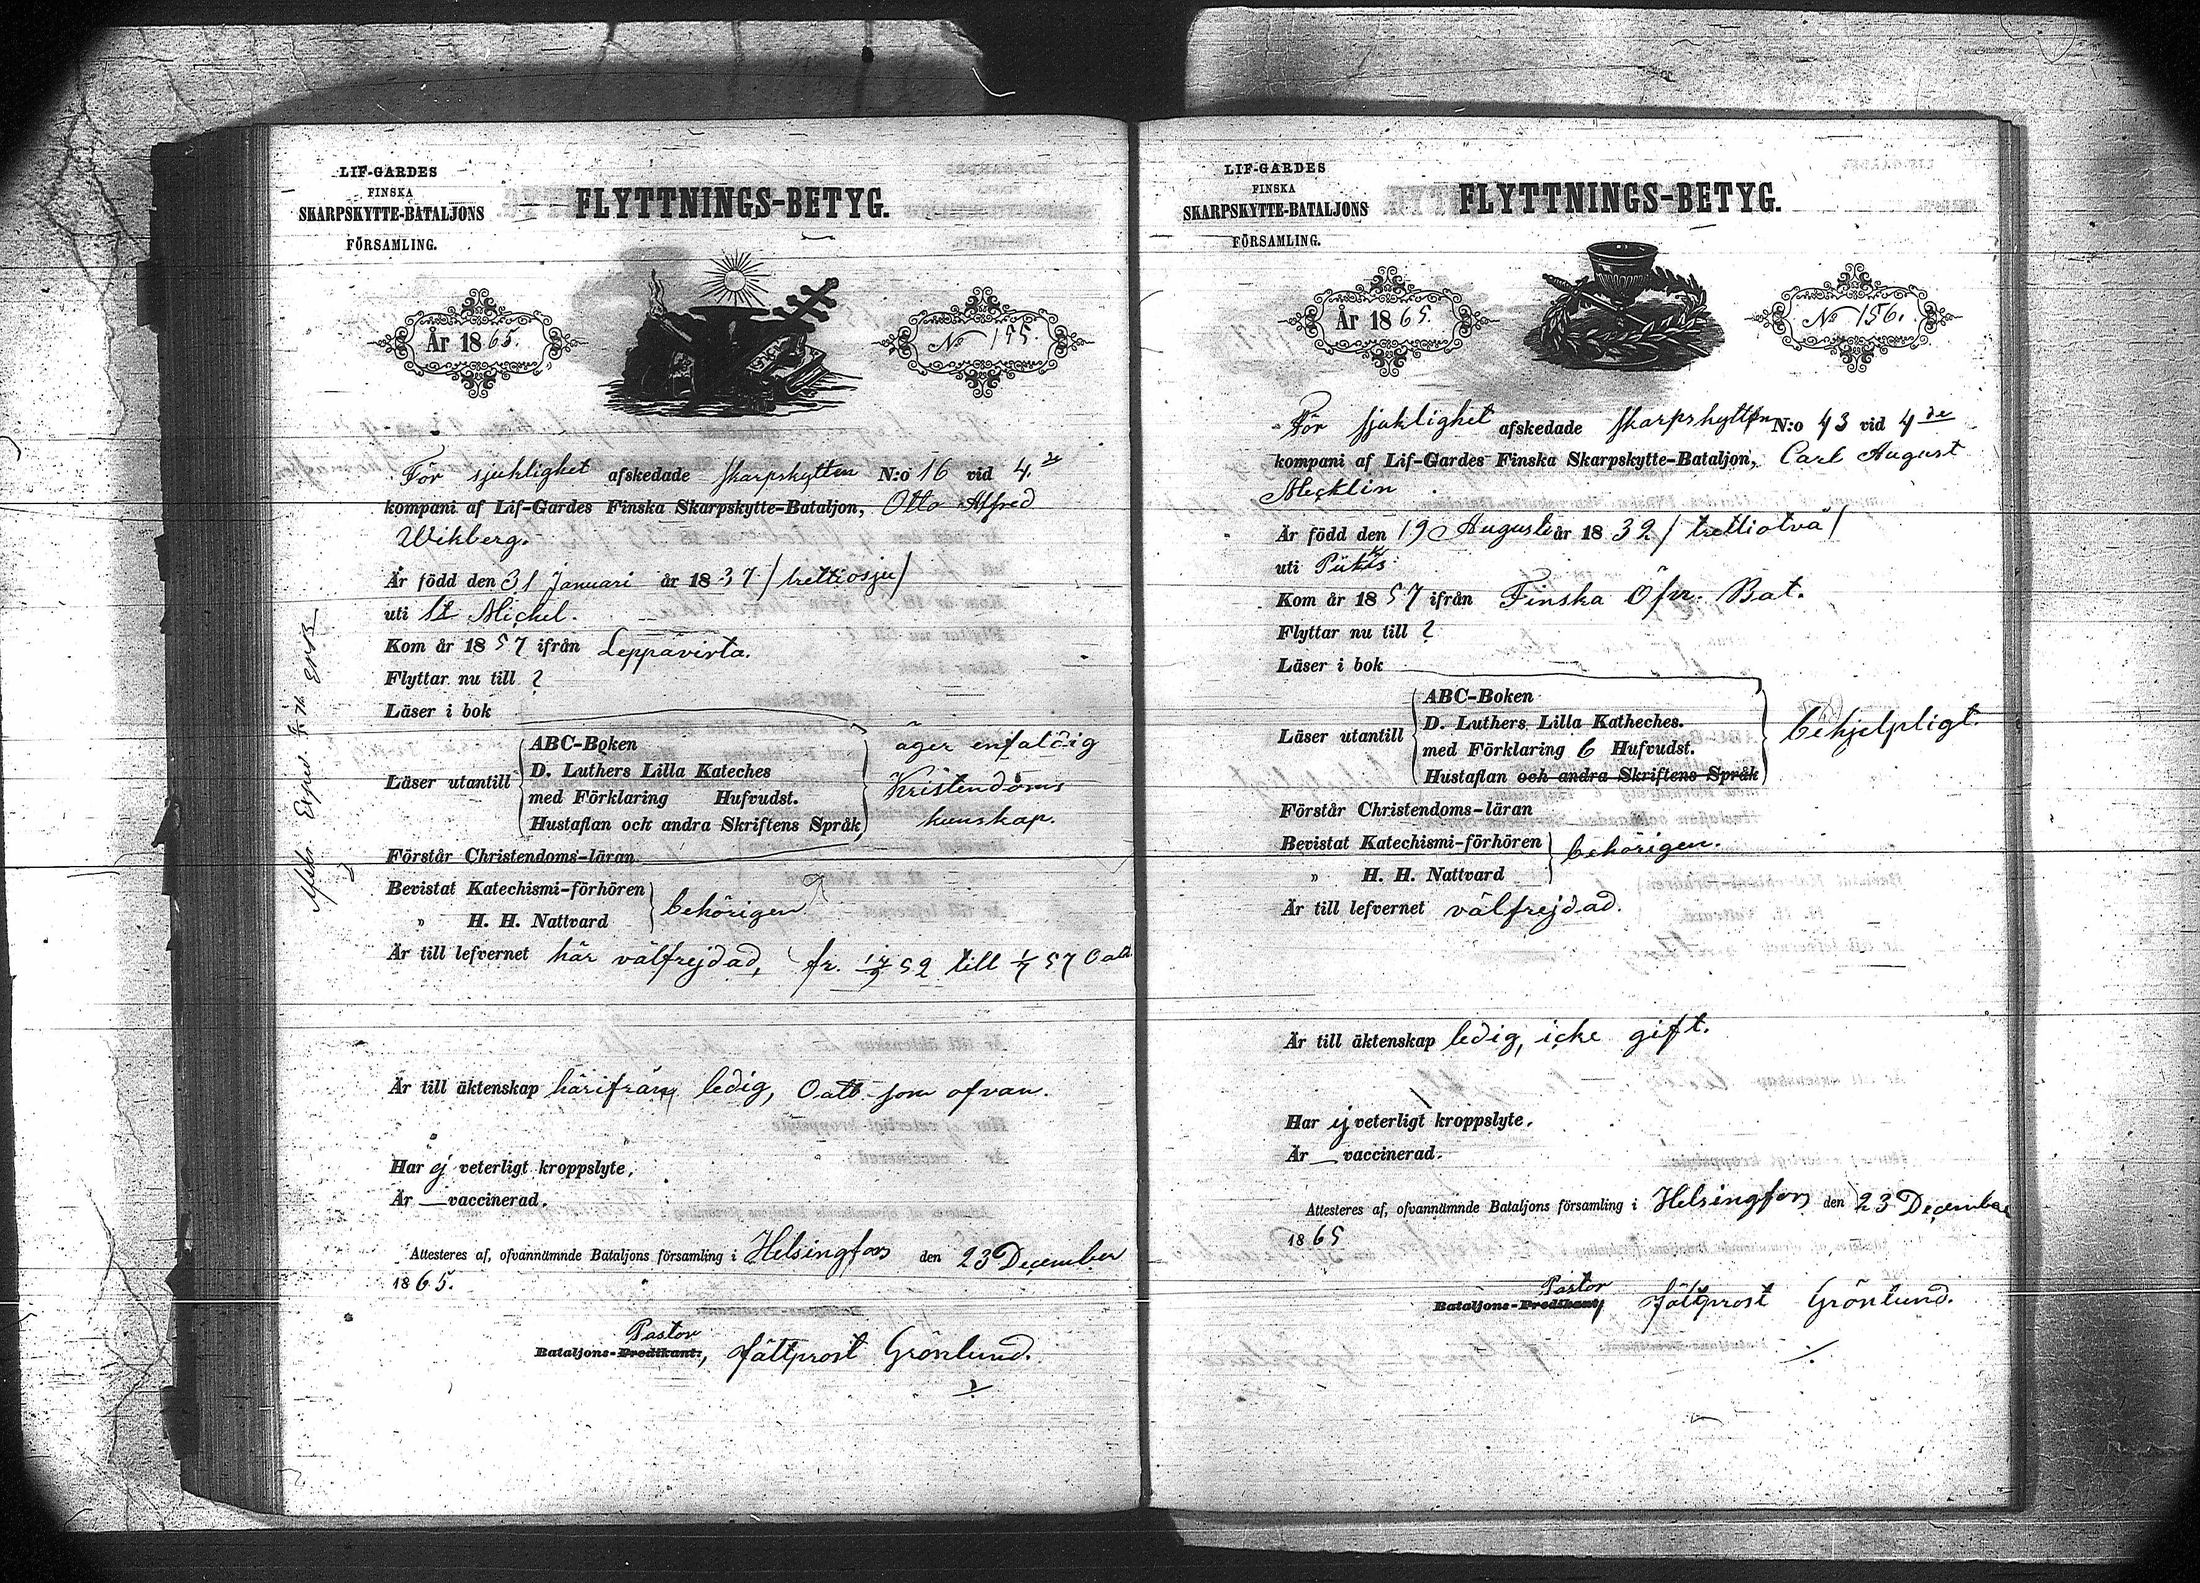 LIF-GARDES
FINSKA
SKARPSKYTTE-BATALJONS
FÖRSAMLING.
FLYTTNINGS-BETYG.
År 1865.
No 155.
För sjuklighet afskedade skarpskytten N:o 16 vid 4.de
kompani af Lif-Gardes Finska Skarpskytte-Bataljon, Otto Alfred
Wikberg.
Är född den 31 Januari år 1837 / trettiosju /
uti St Michel.
Kom år 1857 ifrån Leppävirta.
Flyttar nu till ?
Läser i bok
Läser utantill
ABC-Boken
D. Luthers Lilla Kateches
med Förklaring Hufvudst.
Hustaflan och andra Skriftens Språk
äger enfaldig
Kristendoms
kunskap.
Förstår Christendoms-läran
Bevistat Katechismi-förhören
" H. H. Nattvard
behörigen.
Är till lefvernet här välfrejdad, fr. 52 till 1/7 57 Oatt
Är till äktenskap härifrån ledig, Oatt som ofvan.
Har ej veterligt kroppslyte.
Är — vaccinerad.
Attesteres af, ofvannämnde Bataljons församling i Helsingfors den 23 December
1865.
Pastor
Bataljons-Predikant, fältprost Grönlund.
LIF-GARDES
FINSKA
SKARPSKYTTE-BATALJONS
FÖRSAMLING.
FLYTTNINGS-BETYG.
År 1865.
No 156.
För sjuklighet afskedade skarpskytten N:o 43 vid 4de
kompani af Lif-Gardes Finska Skarpskytte-Bataljon, Carl August
Mecklin
Är född den 19 Augusti år 1832 / trettiotvå /
uti
Kom år 1857 ifrån Finska Öfn. Bat.
Flyttar nu till ?
Läser i bok
Läser utantill
ABC-Boken
D. Luthers Lilla Katheches.
med Förklaring 6 Hufvudst.
Hustaflan och andra Skriftens Språk
behjelpligt.
Förstår Christendoms-läran
Bevistat Katechismi-förhören
" H. H. Nattvard
behörigen.
Är till lefvernet välfrejdad.
Är till äktenskap ledig, icke gift.
Har ej veterligt kroppslyte.
Är — vaccinerad.
Attesteres af, ofvannämnde Bataljons församling i Helsingfors den 23 December
1865
Pastor
Bataljons-Predikant, fältprost Grönlund.